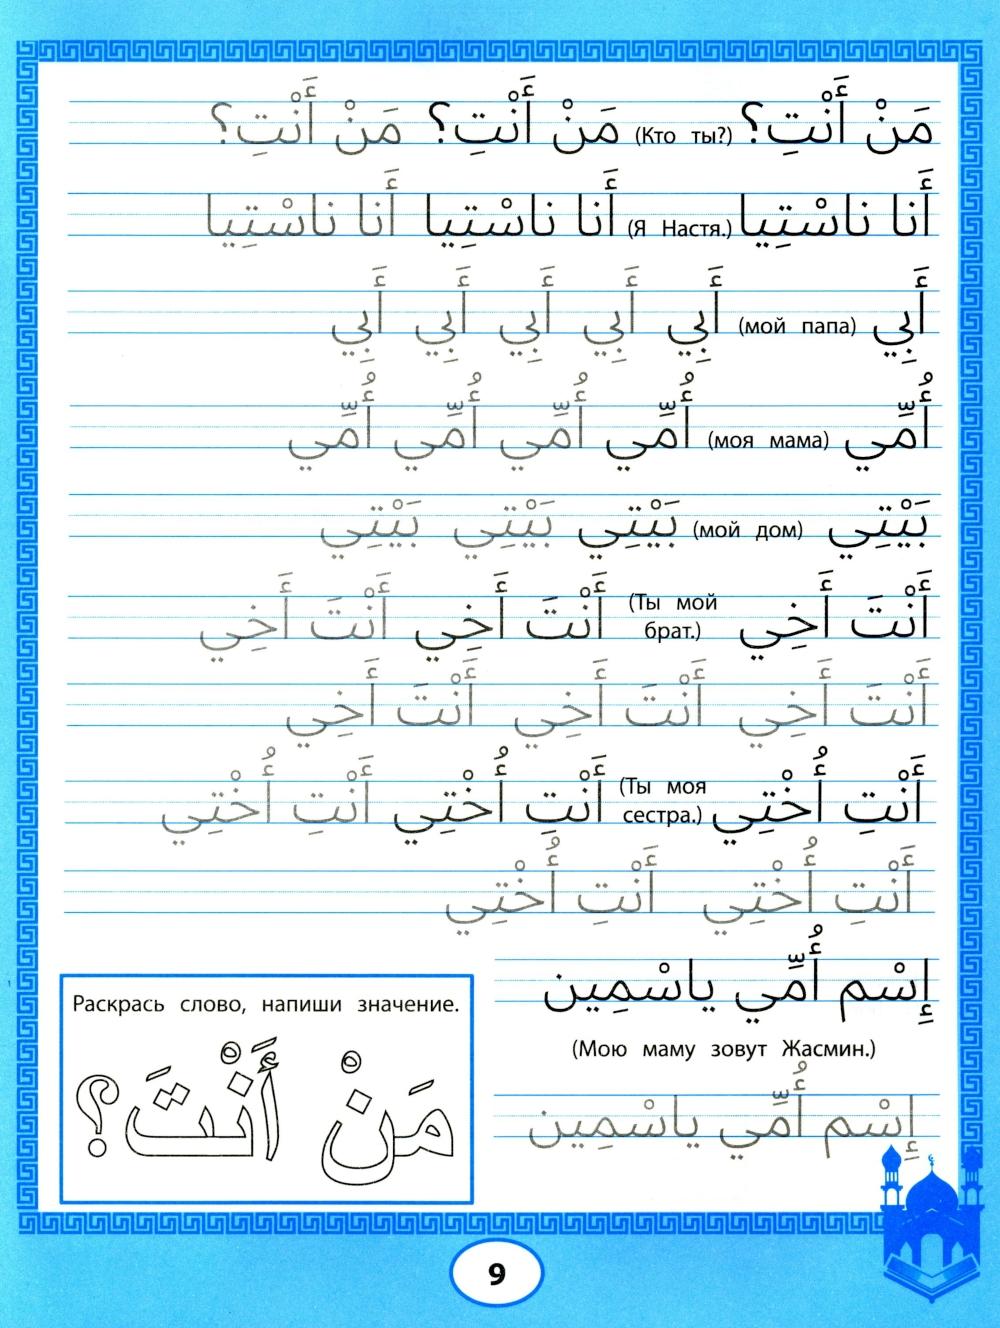 مَنْ أَنْتِ؟ (Кто ты?) مَنْ أَنْتِ؟ مَنْ أَنْتِ؟
أَنا ناسْتِيا (Я Настя.) أَنا ناسْتِيا أَنا ناسْتِيا
أَبِي (мой папа) أَبِي أَبِي أَبِي أَبِي أَبِي
أُمِّي (моя мама) أُمِّي أُمِّي أُمِّي أُمِّي
بَيْتِي (мой дом) بَيْتِي بَيْتِي بَيْتِي
أَنْتَ أَخِي (Ты мой брат.) أَنْتَ أَخِي أَنْتَ أَخِي
أَنْتَ أَخِي أَنْتَ أَخِي أَنْتَ أَخِي
أَنْتِ أُخْتِي (Ты моя сестра.) أَنْتِ أُخْتِي أَنْتِ أُخْتِي
أَنْتِ أُخْتِي أَنْتِ أُخْتِي
إِسْم أُمِّي ياسْمِين
(Мою маму зовут Жасмин.)
إِسْم أُمِّي ياسْمِين
Раскрась слово, напиши значение.
مَنْ أَنْتَ؟
9